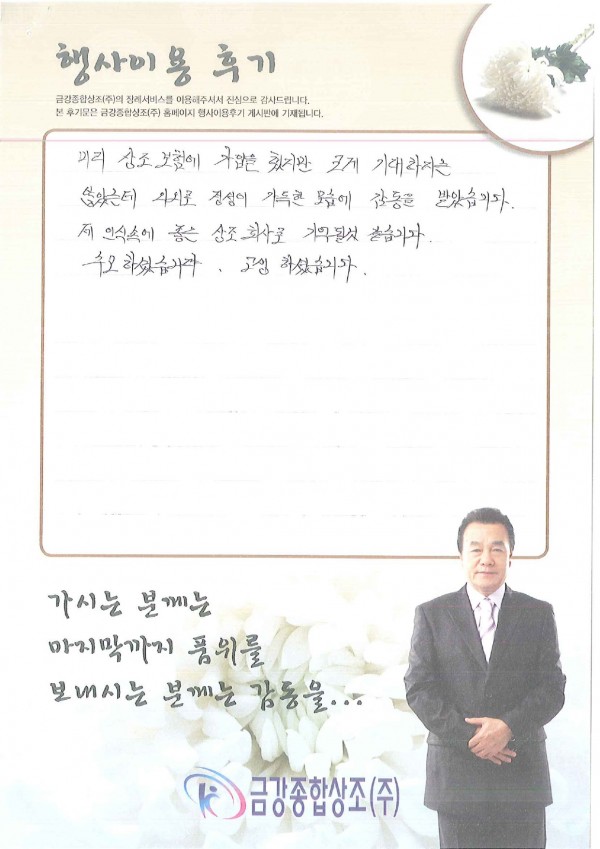 행사이용 후기
금강종합상조(주)의 장례서비스를 이용해주셔서 진심으로 감사드립니다.
본 후기문은 금강종합상조(주) 홈페이지 행사이용후기 게시판에 기재됩니다.
미리 상조 보험에 가입을 했지만 크게 기대하지는
않았는데 의외로 정성이 가득한 모습에 감동을 받았습니다.
제 인식속에 좋은 상조 회사로 기억될것 같습니다.
수고하셨습니다. 고생 하셨습니다.
가시는 분께는
마지막까지 품위를
보내시는 분께는 감동을...
금강종합상조(주)